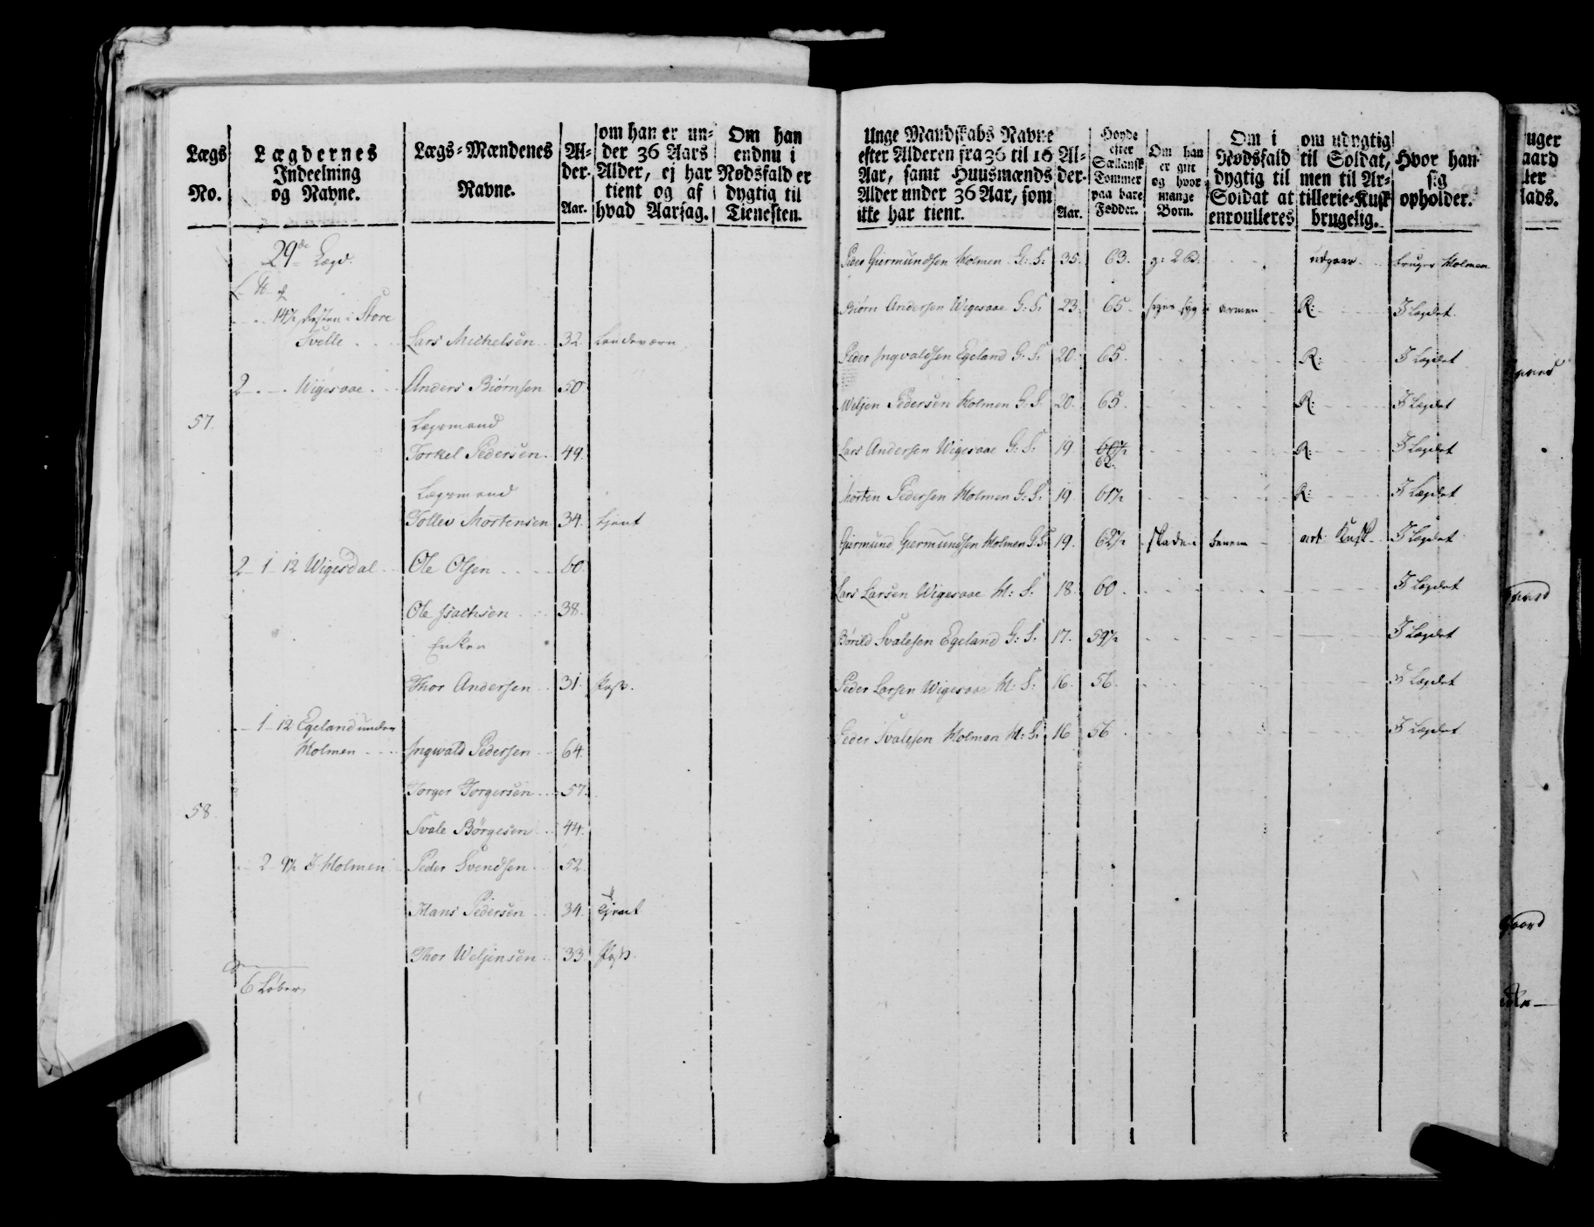 Lægs
No.
Lægdernes
Indeelning
og Navne.
Lægs-Mændenes
Navne.
Al-
der.
Aar.
om han er un-
der 36 Aars
Alder, ej har
tient og af
hvad Aarsag.
Om han
endnu i
Nødsfald er
dygtig til
Tienesten.
29de Lægd.
14½ i Store
Svelle Lars Michelsen 32 Landeværn
2 Wigesaae Anders Biørnsen 50
57.
Lægsmand
Torkel Pedersen 49.
Lægsmand
Tollev Mortensen 34. tjent
2 1 12 Wigesdal Ole Olsen 60
Ole Isachsen 38.
Enken
Thor Andersen 31.
1 12 Egeland under
Holmen Ingwald Pedersen 64.
Torger Torgersen 57.
58
Svale Børgesen 44.
2 Holmen Peder Svendsen 52
Hans Pedersen 34. tjent
Thor Weljensen 33
6 Løber
Unge Mandskabs Navne
efter Alderen fra 36 til 16
Aar, samt Huusmænds
Alder under 36 Aar, som
ikke har tient.
Al-
der.
Aar.
Høyde
efter
Siællansk
Tommer
paa bare
Fødder.
Om han
er gift
og hvor
mange
Børn.
Om i
Nødsfald
dygtig til
Soldat at
enroulleres
om udygtig
til Soldat,
men til Ar-
tillerie-Kusk
brugelig.
Hvor han
sig
opholder.
Peder Giermundsen Holmen G: S: 35. 63. g: 2 B. udgaar bruger Holmen
Biørn Andersen Wigesaae G: S: 23. 65 siger syg i armen R: I Lægdet
Peder Ingvaldsen Egeland G: S: 20. 65. R: I Lægdet
Weljen Pedersen Holmen G: S 20. 65. R: I Lægdet
Lars Andersen Wigesaae G: S. 19 62. R: I Lægdet
Morten Pedersen Holmen G: S. 19 61½ R: I Lægdet
Giermund Giermundsen Holmen G: S. 19. 62½ skade i benene art: Kusk I Lægdet
Lars Larsen Wigesaae H: S. 18. 60 I Lægdet
Børild Svalesen Egeland G: S. 17. 59½ I Lægdet
Peder Larsen Wigesaae H: S. 16. 56. I Lægdet
Peder Svalesen Holmen H: S. 16 56 I Lægdet
uger
aard
ter
lads.